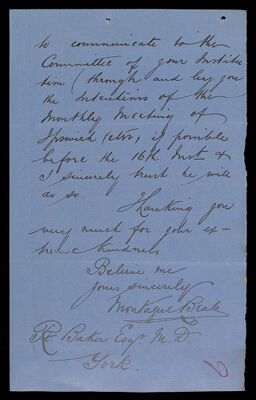 to communicate to the
Committee of your Institu
tion (through and by you
the Intentions of the
Monthly Meeting of
Ipswich (etc), if possible
before the 16th Inst &
I sincerely trust he will
do so.
Thanking you
very much for your ex-
treme kindness
Believe me
yours sincerely
Montague Beale
R. Baker Esq. M.D.
York.